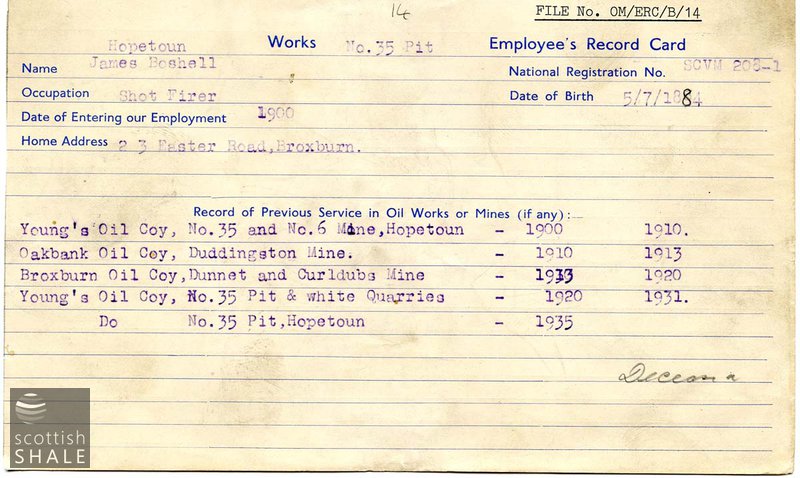 14
FILE No. OM/ERC/B/14
Hopetoun Works No.35 Pit Employee's Record Card
Name James Boshell National Registration No. SCVM 208-1
Occupation Shot Firer Date of Birth 5/7/1884
Date of Entering our Employment 1900
Home Address 2 3 Easter Road,Broxburn.
Record of Previous Service in Oil Works or Mines (if any):—
Young's Oil Coy, No.35 and No.6 Mine,Hopetoun - 1900 1910.
Oakbank Oil Coy, Duddingston Mine. - 1910 1913
Broxburn Oil Coy,Dunnet and Curldubs Mine - 1913 1920
Young's Oil Coy, No.35 Pit & white Quarries - 1920 1931.
Do No.35 Pit,Hopetoun - 1935
scottish
SHALE